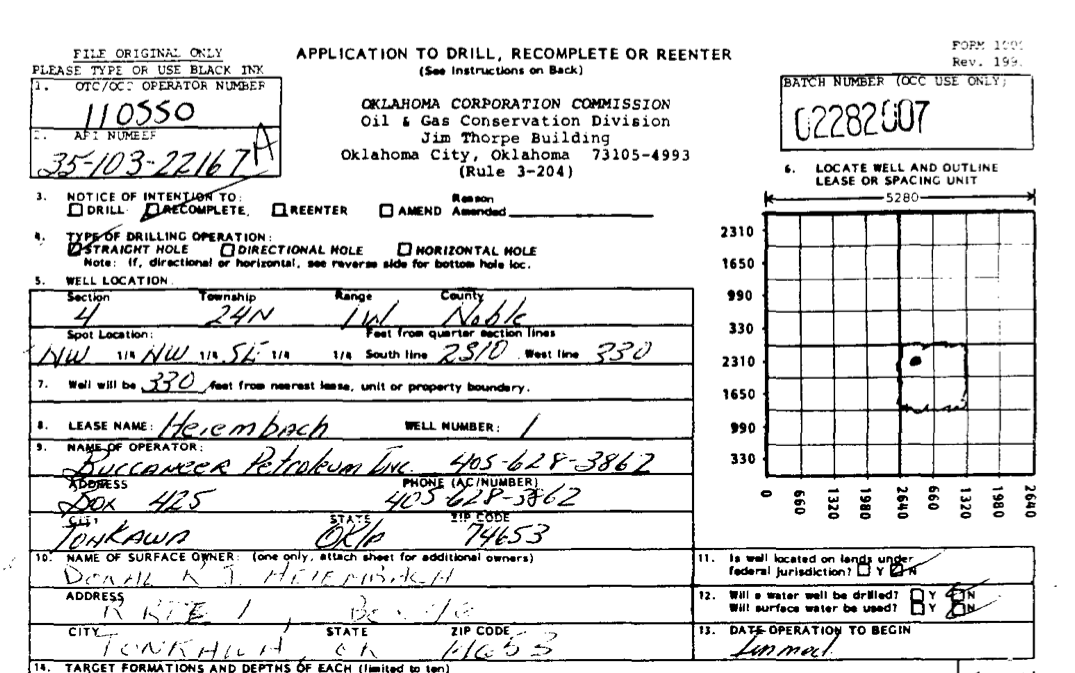 FILE ORIGINAL ONLY
PLEASE TYPE OR USE BLACK INK
APPLICATION TO DRILL, RECOMPLETE OR REENTER
(See Instructions on Back)
FORM
Rev. 199
1. OTC/OCC OPERATOR NUMBER
110550
2. API NUMBER
35-103-22167 A
OKLAHOMA CORPORATION COMMISSION
Oil & Gas Conservation Division
Jim Thorpe Building
Oklahoma City, Oklahoma 73105-4993
(Rule 3-204)
BATCH NUMBER (OCC USE ONLY)
02282007
3. NOTICE OF INTENTION TO:
DRILL RECOMPLETE, REENTER AMEND Reason Amended
4. TYPE OF DRILLING OPERATION:
STRAIGHT HOLE DIRECTIONAL HOLE HORIZONTAL HOLE
Note: If, directional or horizontal, see reverse side for bottom hole loc.
5. WELL LOCATION
Section Township Range County
4 24N 1W Noble
Spot Location: Feet from quarter section lines
NW 1/4 NW 1/4 SE 1/4 1/4 South line 2310 West line 330
7. Well will be 330 feet from nearest lease, unit or property boundary.
8. LEASE NAME: Heiembach WELL NUMBER: 1
9. NAME OF OPERATOR:
Buccaneer Petroleum Inc. 405-628-3862
ADDRESS PHONE (AC/NUMBER)
Box 425 405-628-3862
CITY STATE ZIP CODE
Tonkawa Okla 74653
10. NAME OF SURFACE OWNER: (one only, attach sheet for additional owners)
HEIEMBACH
ADDRESS
RTE 1
CITY STATE ZIP CODE
TONKAWA, OK 74653
14. TARGET FORMATIONS AND DEPTHS OF EACH (limited to ten)
6. LOCATE WELL AND OUTLINE
LEASE OR SPACING UNIT
5280
2310
1650
990
330
2310
1650
990
330
0 660 1320 1980 2640 660 1320 1980 2640
11. Is well located on lands under
federal jurisdiction? Y N
12. Will a water well be drilled? Y N
Will surface water be used? Y N
13. DATE OPERATION TO BEGIN